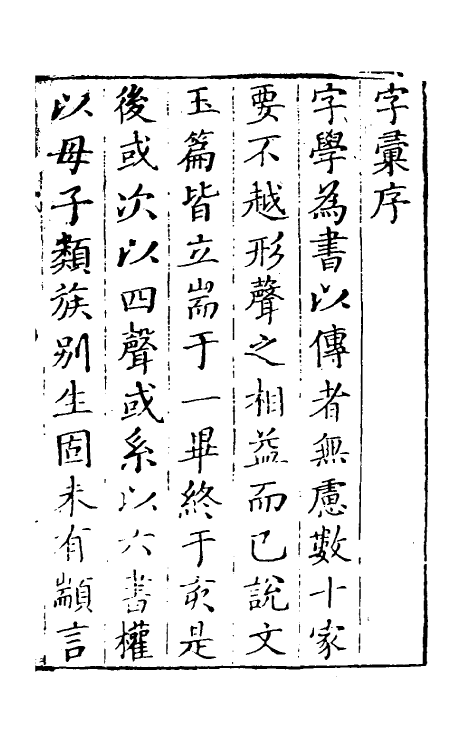 字彙序
字學為書以傳者無慮數十家
要不越形聲之相益而已說文
玉篇皆立耑于一畢終于亥是
後或次以四聲或系以六書權
以母子類族别生固未有顓言